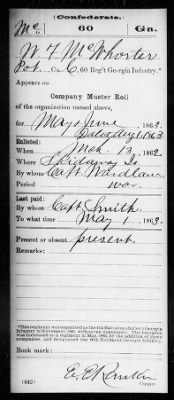 (Confederate.)
Mc 60 Ga.
W. F. McWhorter
Pvt., Co. C, 60 Reg't Georgia Infantry.*
Appears on
Company Muster Roll
of the organization named above,
for May & June, 1863.
Dated Aug 1, 1863
Enlisted:
When Mch. 13, 1862
Where Skidaway Is.
By whom Capt. Wardlaw
Period war
Last paid:
By whom Capt. Smith
To what time May 1, 1863.
Present or absent present
Remarks:
Book mark:
(642)
Copyist.